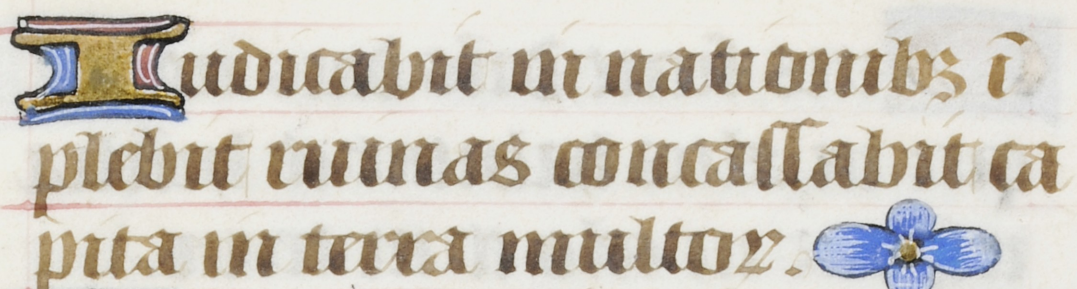 Iudicabit in nationibꝫ ī
plebit ruinas conca&#383;&#383;abit ca
pita in terra multoꝝ.